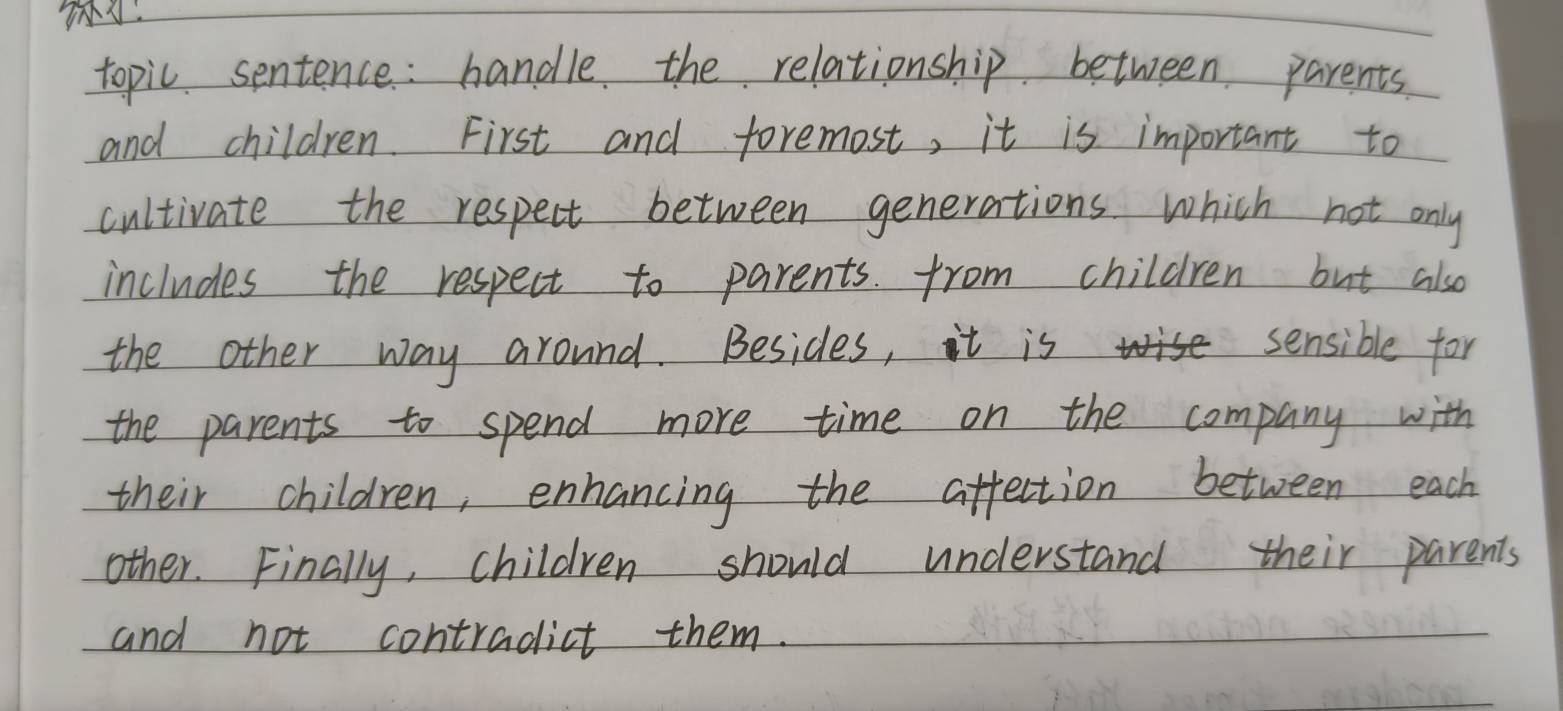 练习:
topic sentence: handle the relationship between parents
and children. First and foremost, it is important to
cultivate the respect between generations. which not only
includes the respect to parents. from children but also
the other way around. Besides, it is wise sensible for
the parents to spend more time on the company with
their children, enhancing the affection between each
other. Finally, children should understand their parents
and not contradict them.